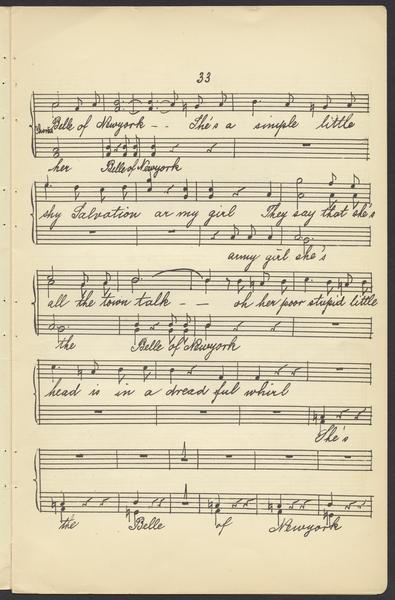 33
Belle of Newyork - - She's a simple little
Chorus
her Belle of Newyork
shy Salvation ar my girl They say that she's
army girl she's
all the town talk - - oh her poor stupid little
the Belle of Newyork
head is in a dread ful whirl
She's
the Belle of Newyork